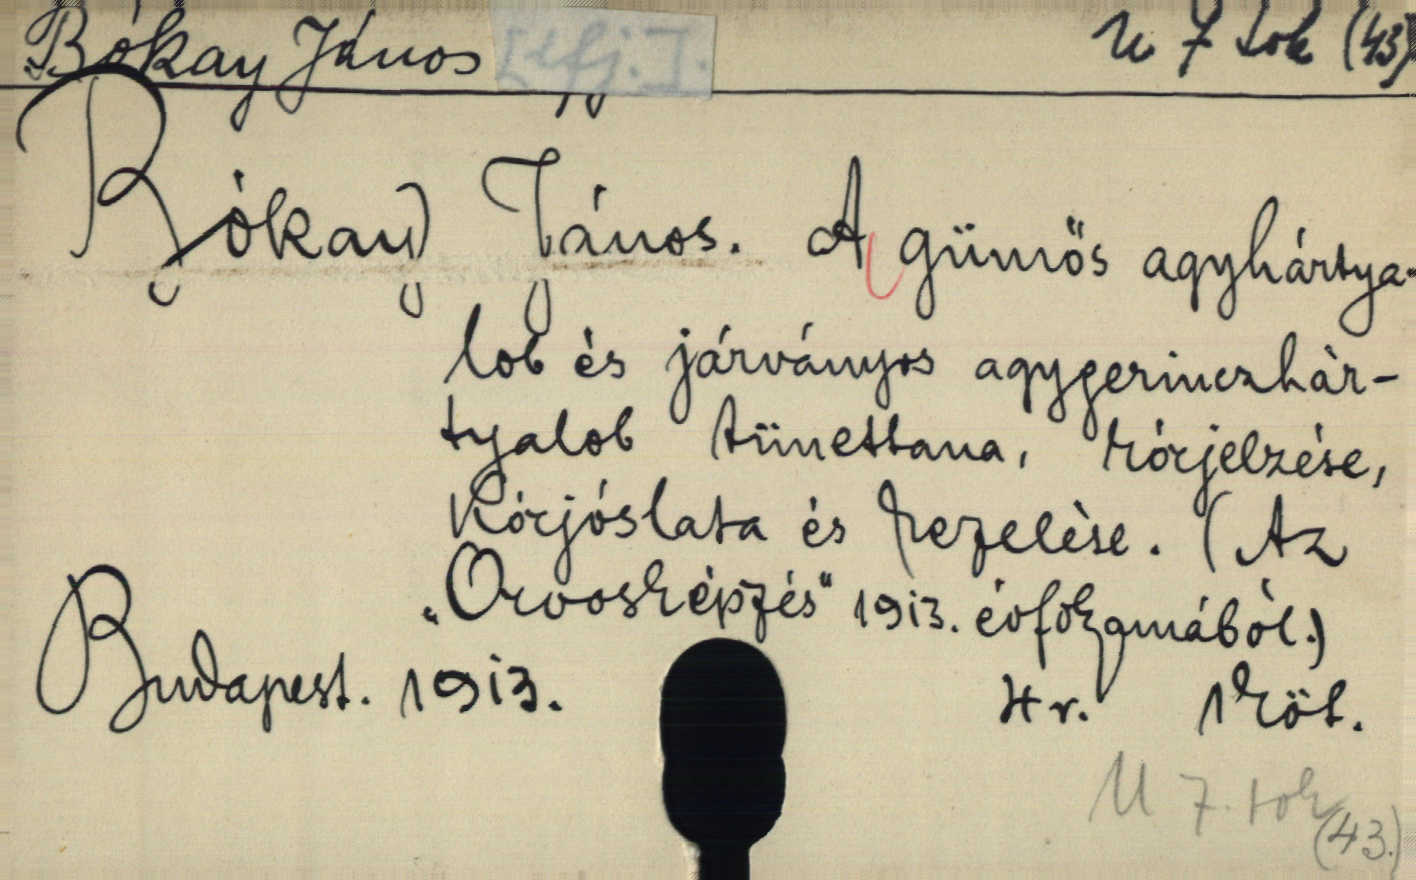 Bókay János [ifj.]. U 7 tok (43)
Bókay János. A gümős agyhártya-
lob és járványos agygerinczhár-
tyalob tünettana, kórjelzése,
kórjóslata és kezelése. (Az
„Orvosképzés" 1913. évfolyamából.)
Budapest. 1913. Hr. 1 Köt.
U 7. tok
(43.)